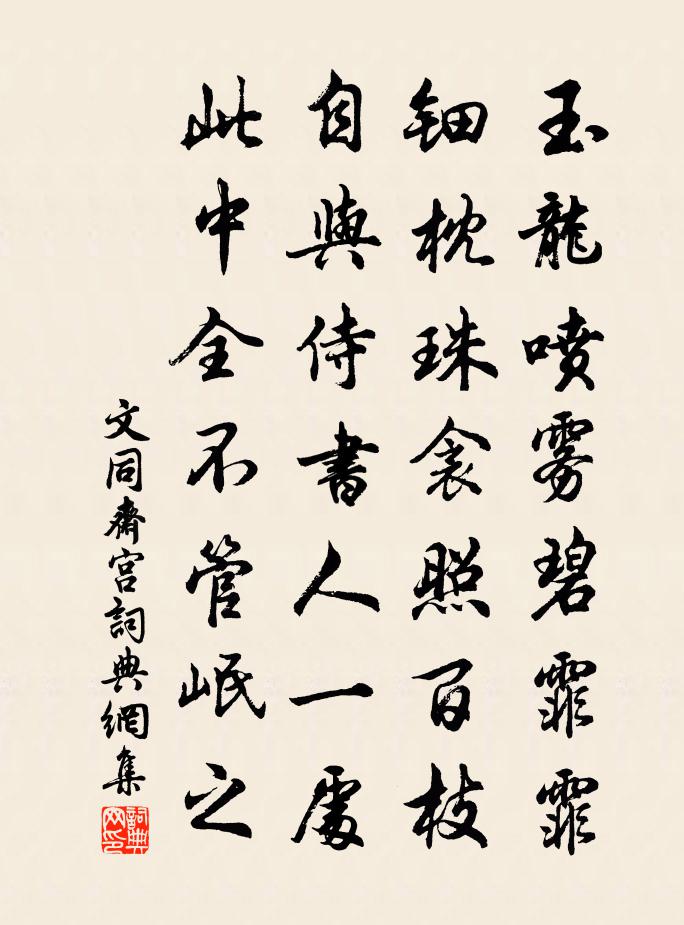 玉龍噴雾碧霏霏
鈿枕珠衾照百枝
自與侍書人一處
此中全不管岷之
文同齋宫詞典網集
詞典網印